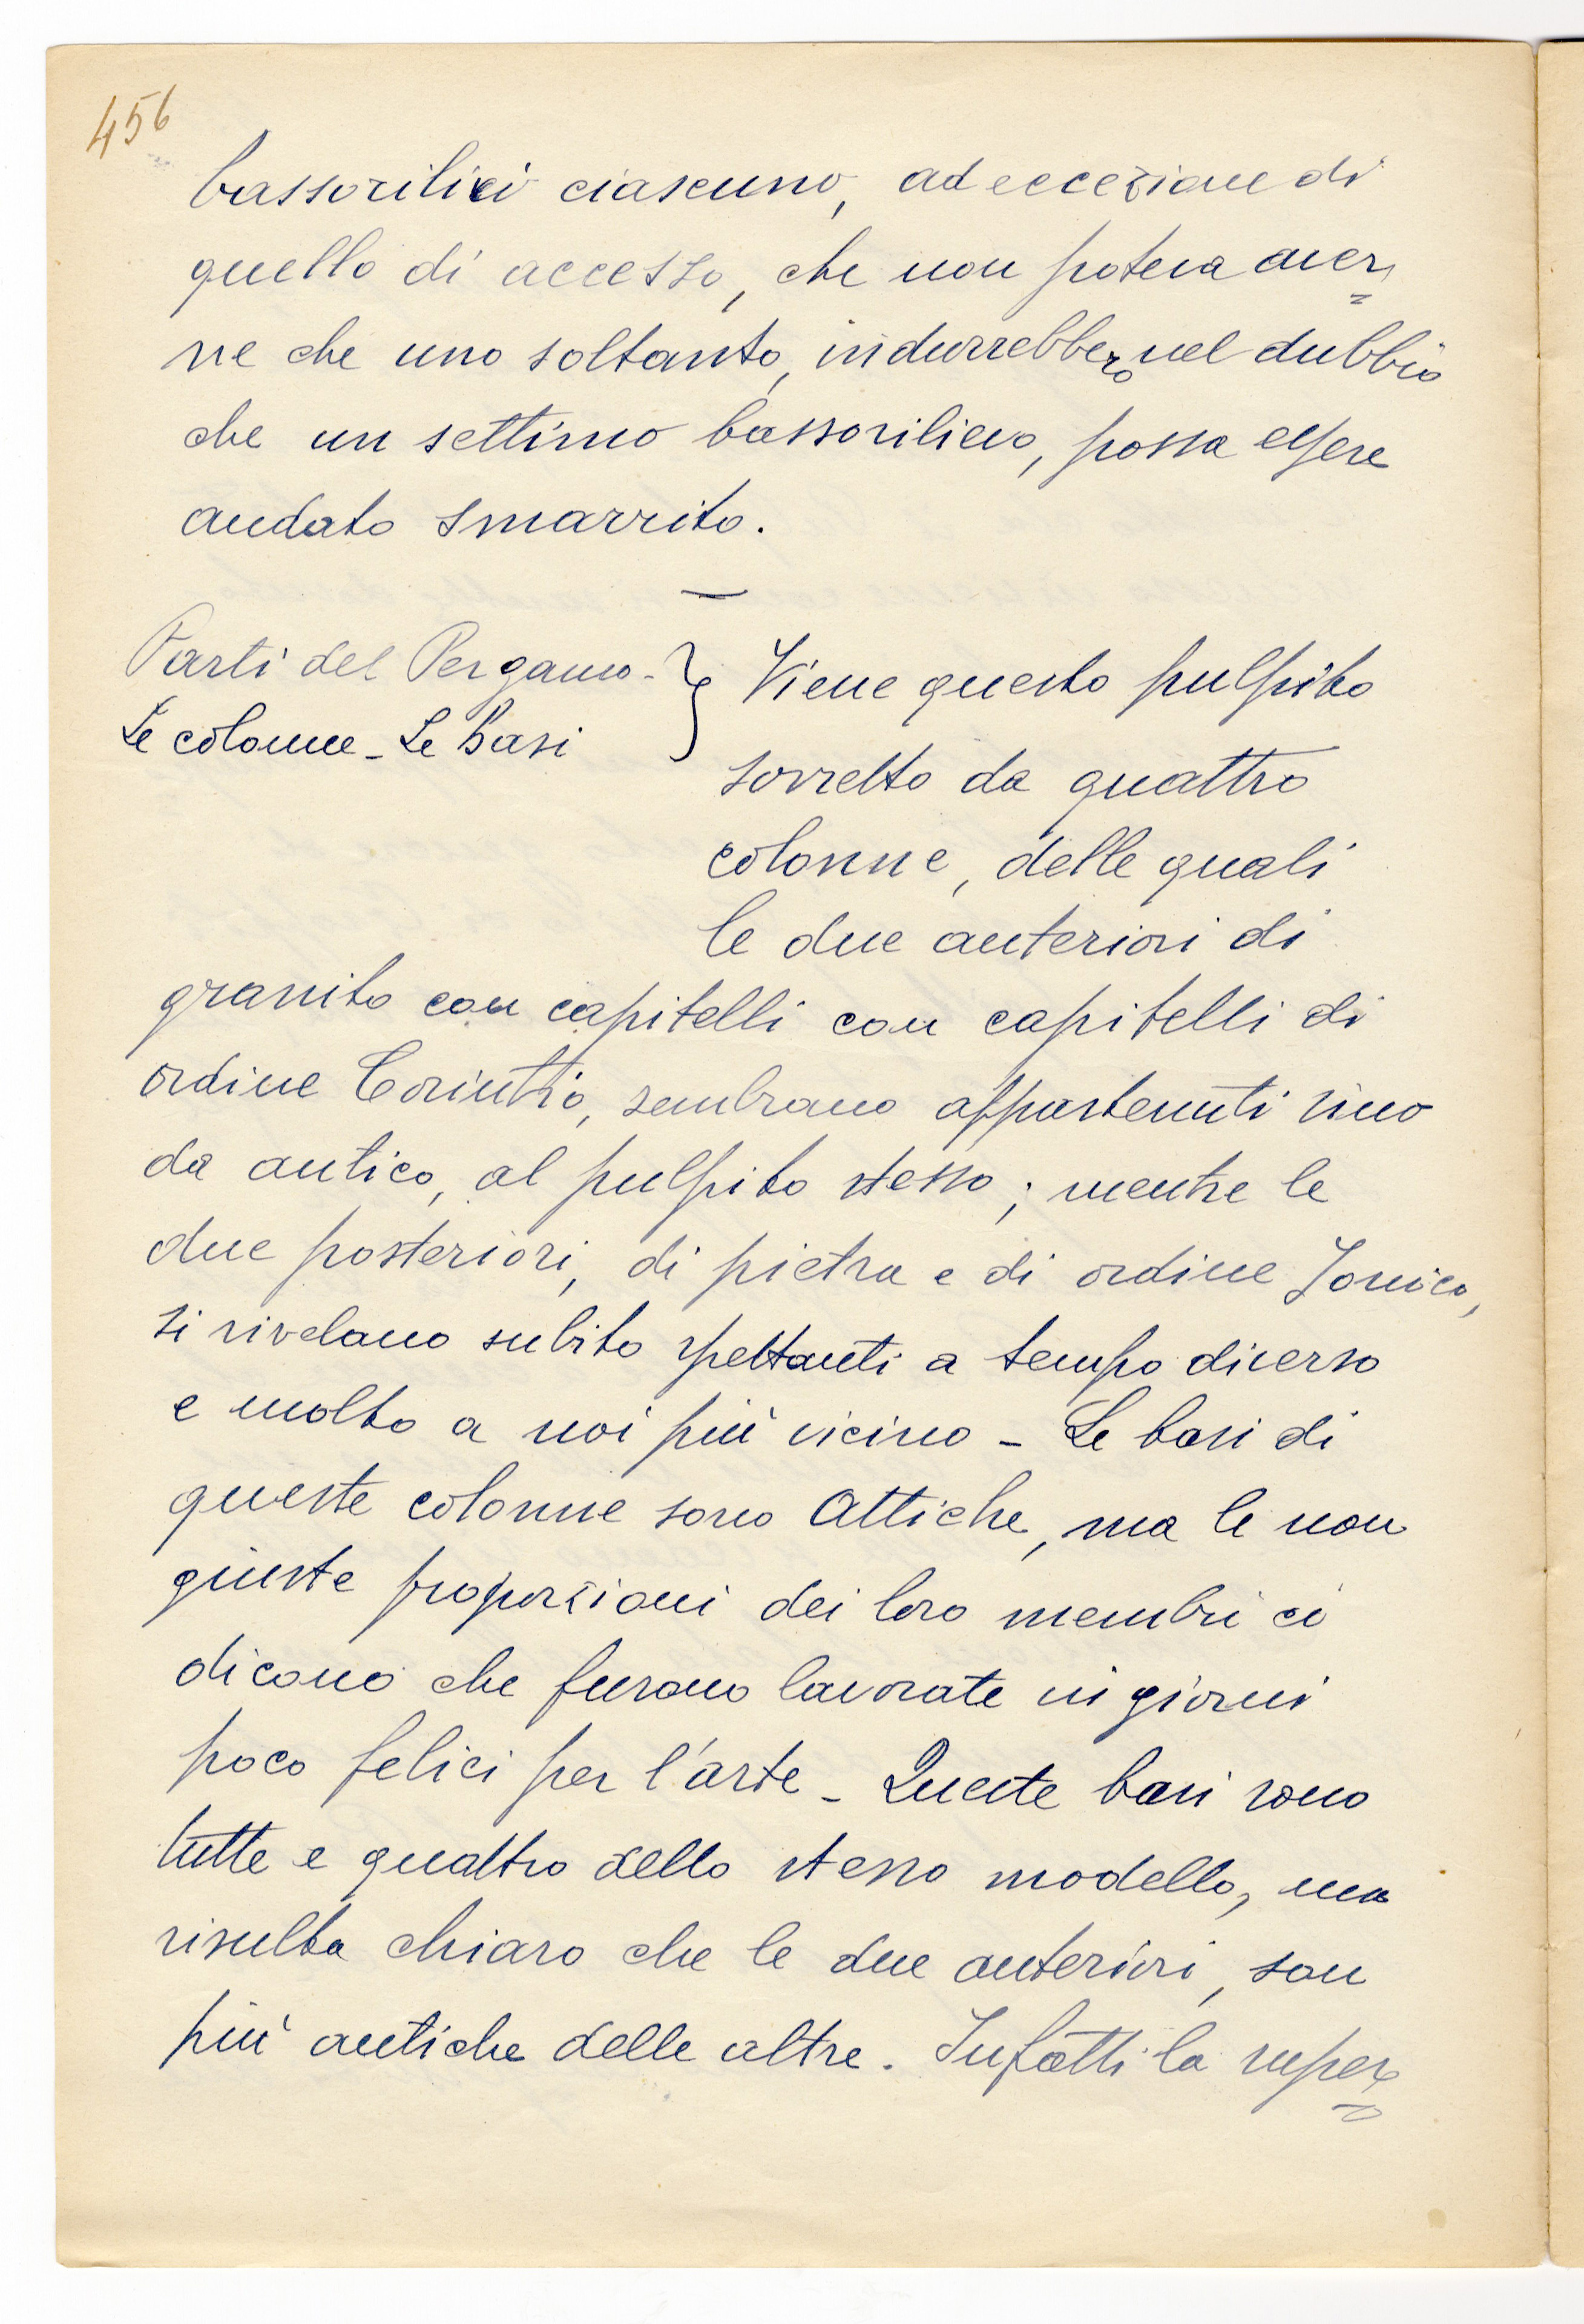 456
bassorilievi ciascuno, ad eccezione di
quello di accesso, che non poteva aver=
ne che uno soltanto, indurrebbero nel dubbio
che un settimo bassorilievo, possa essere
andato smarrito.
Parti del Pergamo-
Le colonne - Le Basi
} Viene questo pulpito
sorretto da quattro
colonne, delle quali
le due anteriori di
granito con capitelli con capitelli di
ordine Corintio, sembrano appartenuti sino
da antico, al pulpito stesso; mentre le
due posteriori, di pietra e di ordine Jonico,
si rivelano subito spettanti a tempo diverso
e molto a noi più vicino - Le basi di
queste colonne sono Attiche, ma le non
giuste proporzioni dei loro membri ci
dicono che furono lavorate in giorni
poco felici per l'arte - Queste basi sono
tutte e quattro dello stesso modello, ma
risulta chiaro che le due anteriori, son
più antiche delle altre. Infatti la super=